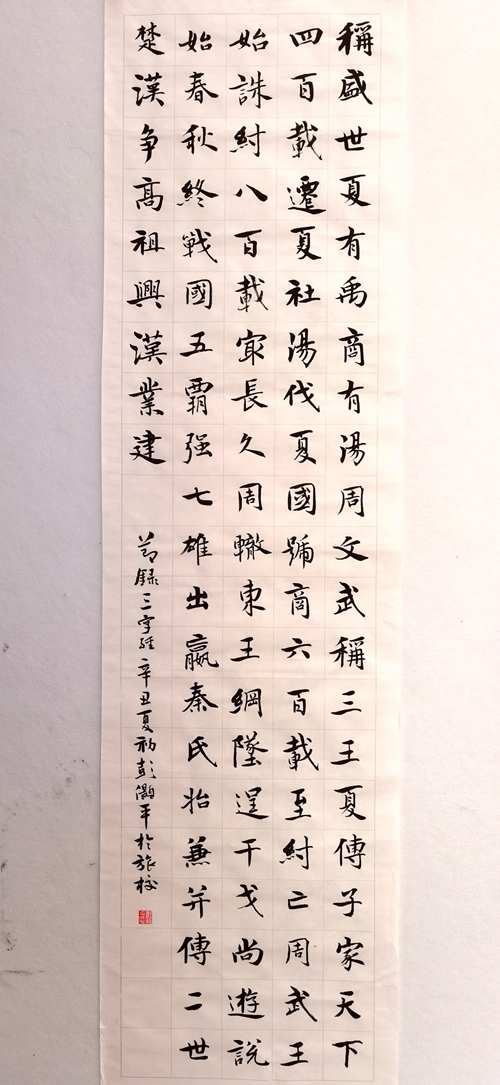 稱盛世夏有禹商有湯周文武稱三王夏傳子家天下
四百載遷夏社湯伐夏國號商六百載至紂亡周武王
始誅紂八百載冣長久周轍東王綱墜逞干戈尚遊說
始春秋終戰國五霸强七雄出嬴秦氏始兼并傳二世
楚漢争高祖興漢業建
節録三字經辛丑夏初彭平於旅校